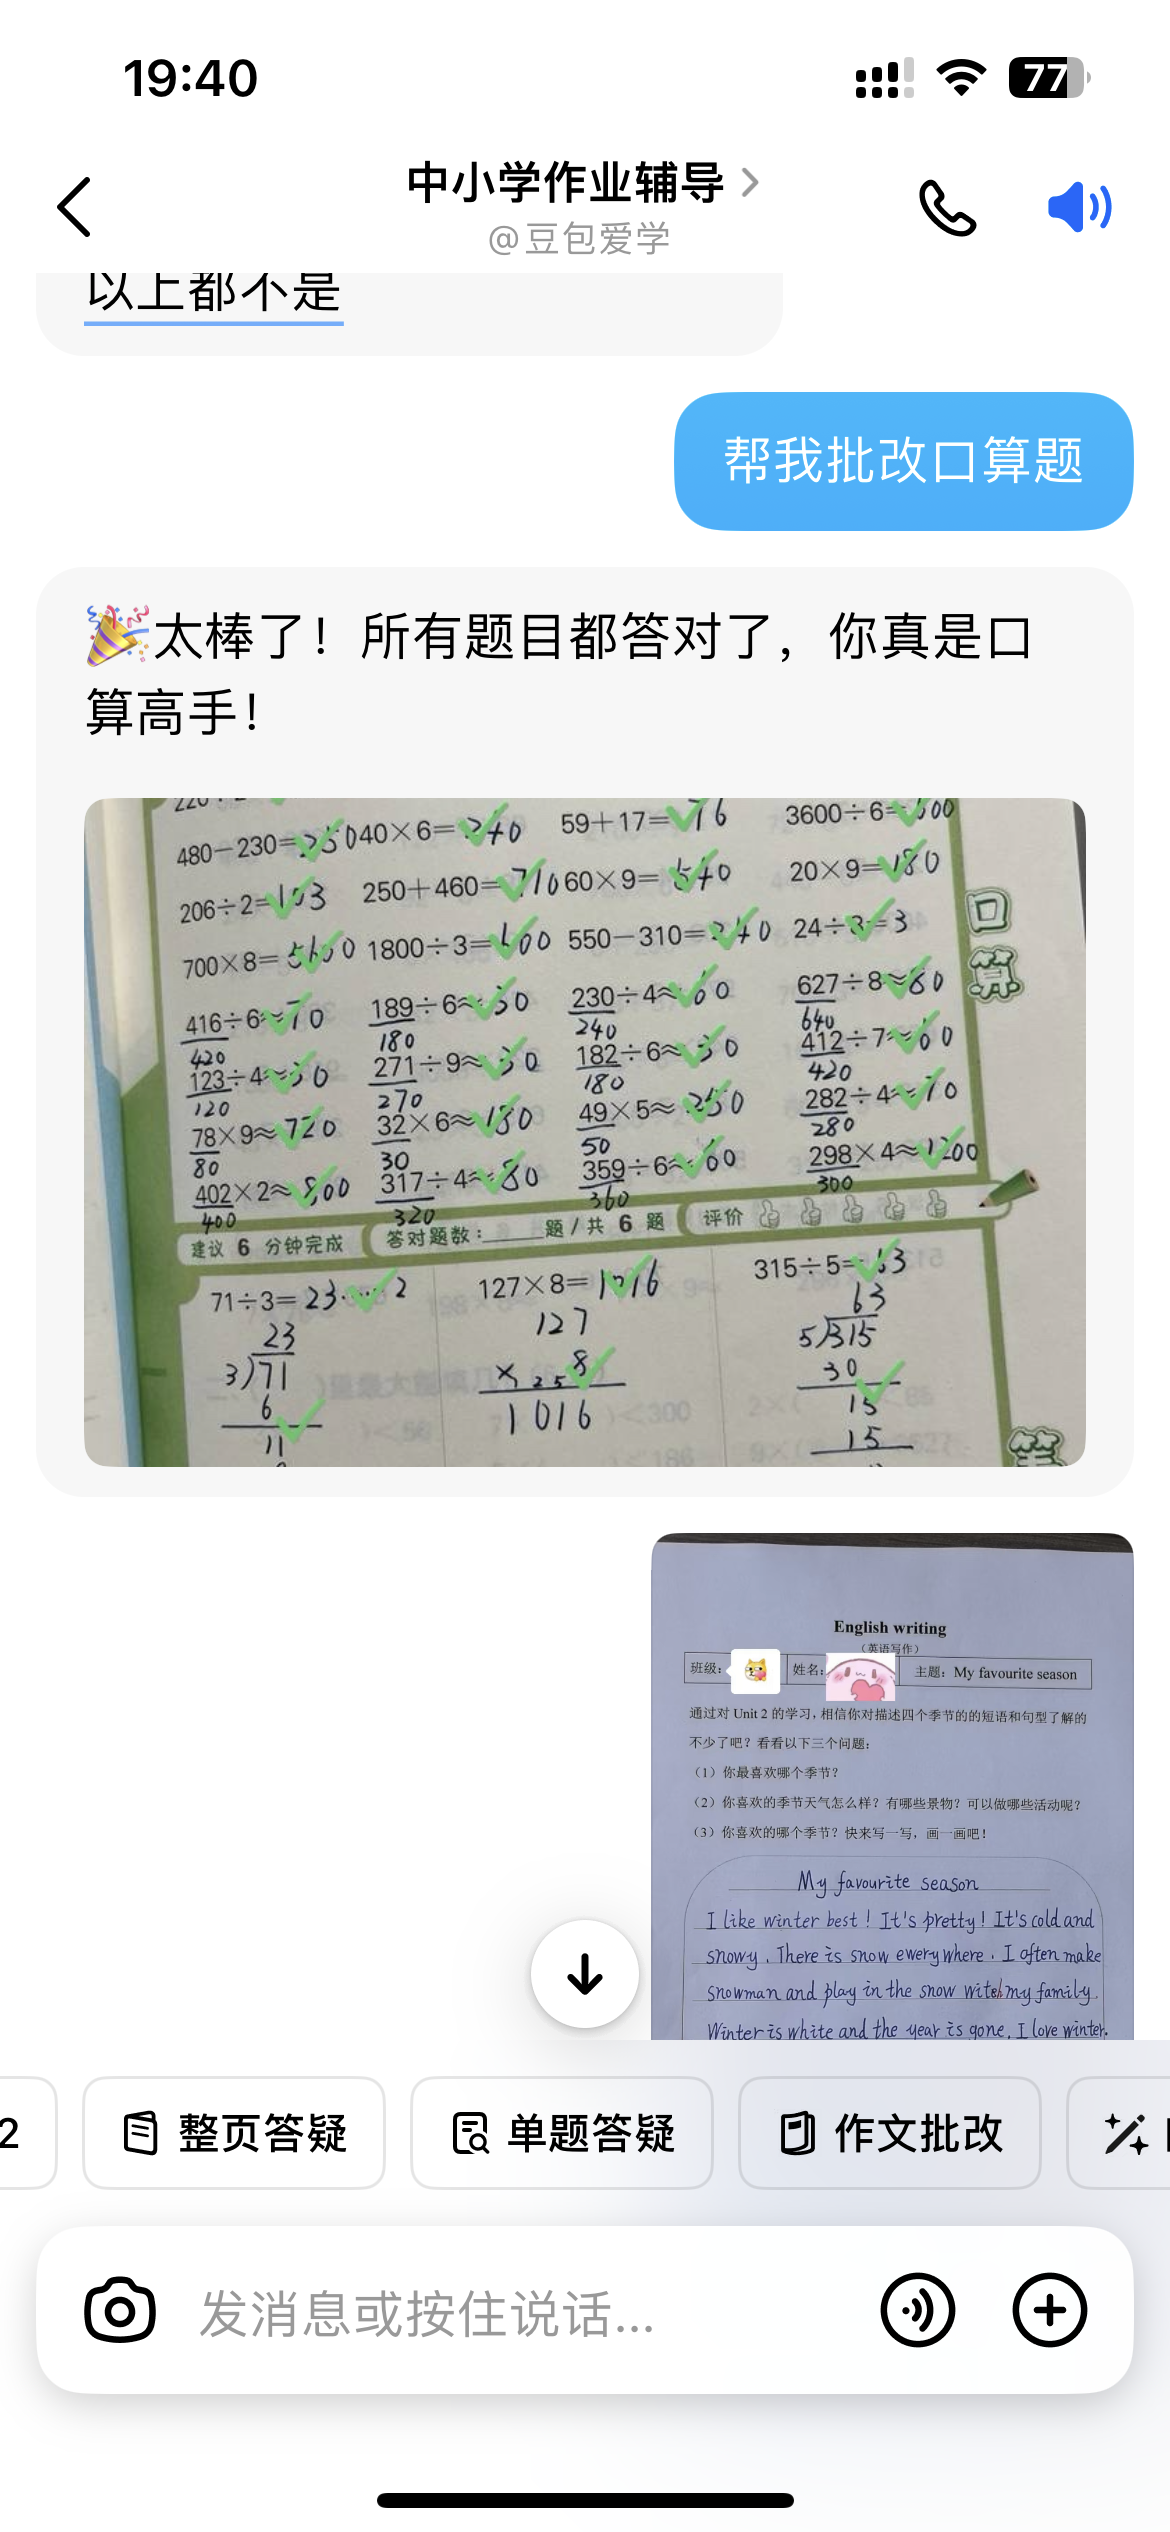 19:40
77
中小学作业辅导
@豆包爱学
以上都不是
帮我批改口算题
🎉太棒了！所有题目都答对了，你真是口
算高手！
480－230=250 40×6=240 59＋17=76 3600÷6=600
206÷2=103 250＋460=710 60×9=540 20×9=180
700×8=5600 1800÷3=600 550－310=240 24÷8=3
416÷6≈70 189÷6≈30 230÷4≈60 627÷8≈80
420 180 240 640
123÷4≈30 271÷9≈30 182÷6≈30 412÷7≈60
120 270 180 420
78×9≈720 32×6≈180 49×5≈250 282÷4≈70
80 30 50 280
402×2≈800 317÷4≈80 359÷6≈60 298×4≈1200
400 320 360 300
口算
建议 6 分钟完成 答对题数：____题 / 共 6 题 评价
71÷3=23……2 127×8=1016 315÷5=63
23 127 63
3)71 × 8 5)315
6 25 30
11 1016 15
15
English writing
（英语写作）
班级： 姓名： 主题：My favourite season
通过对 Unit 2 的学习，相信你对描述四个季节的的短语和句型了解的
不少了吧？看看以下三个问题：
（1）你最喜欢哪个季节？
（2）你喜欢的季节天气怎么样？有哪些景物？可以做哪些活动呢？
（3）你喜欢的哪个季节？快来写一写，画一画吧！
My favourite season
I like winter best! It's pretty! It's cold and
snowy. There is snow ewery where. I often make
snowman and play in the snow with my family.
Winter is white and the year is gone. I love winter.
2
整页答疑
单题答疑
作文批改
发消息或按住说话...